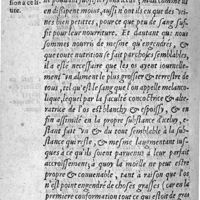 sion a co li-
uee.
en dissipent moins, aussi n'ont ils en eux des vei-
nes bien petites, pource que peu de sang suf-
fist pour leur nourriture. Et d'autant que nous
sommes nourris de mesme qu'engendrés, &
que toute nutrition se faict par choses semblables,
il a esté necessaire que les os ayent iouissent
d'un aliment le plus grossier & terrestre de
tous, tel qu'est le sang que l'on appelle melanco-
lique, lequel par la faculté concoctrice & alte-
ratrice de l'os est blanchy & espoissy, & en
fin assimilé en la propre substance d'iceluy, &
estant fait un & du tout semblable à la sub-
stance qu'il reste, & mesme l'augmentant ius-
ques à ce qu'ils soient paruenus à leur parfait
accroissement; à quoy la moëlle ne peut estre
propre & conuenable, tant à raison que l'os
n'est point engendré de choses grasses (car en la
premiere conformation tout ce qui est gras